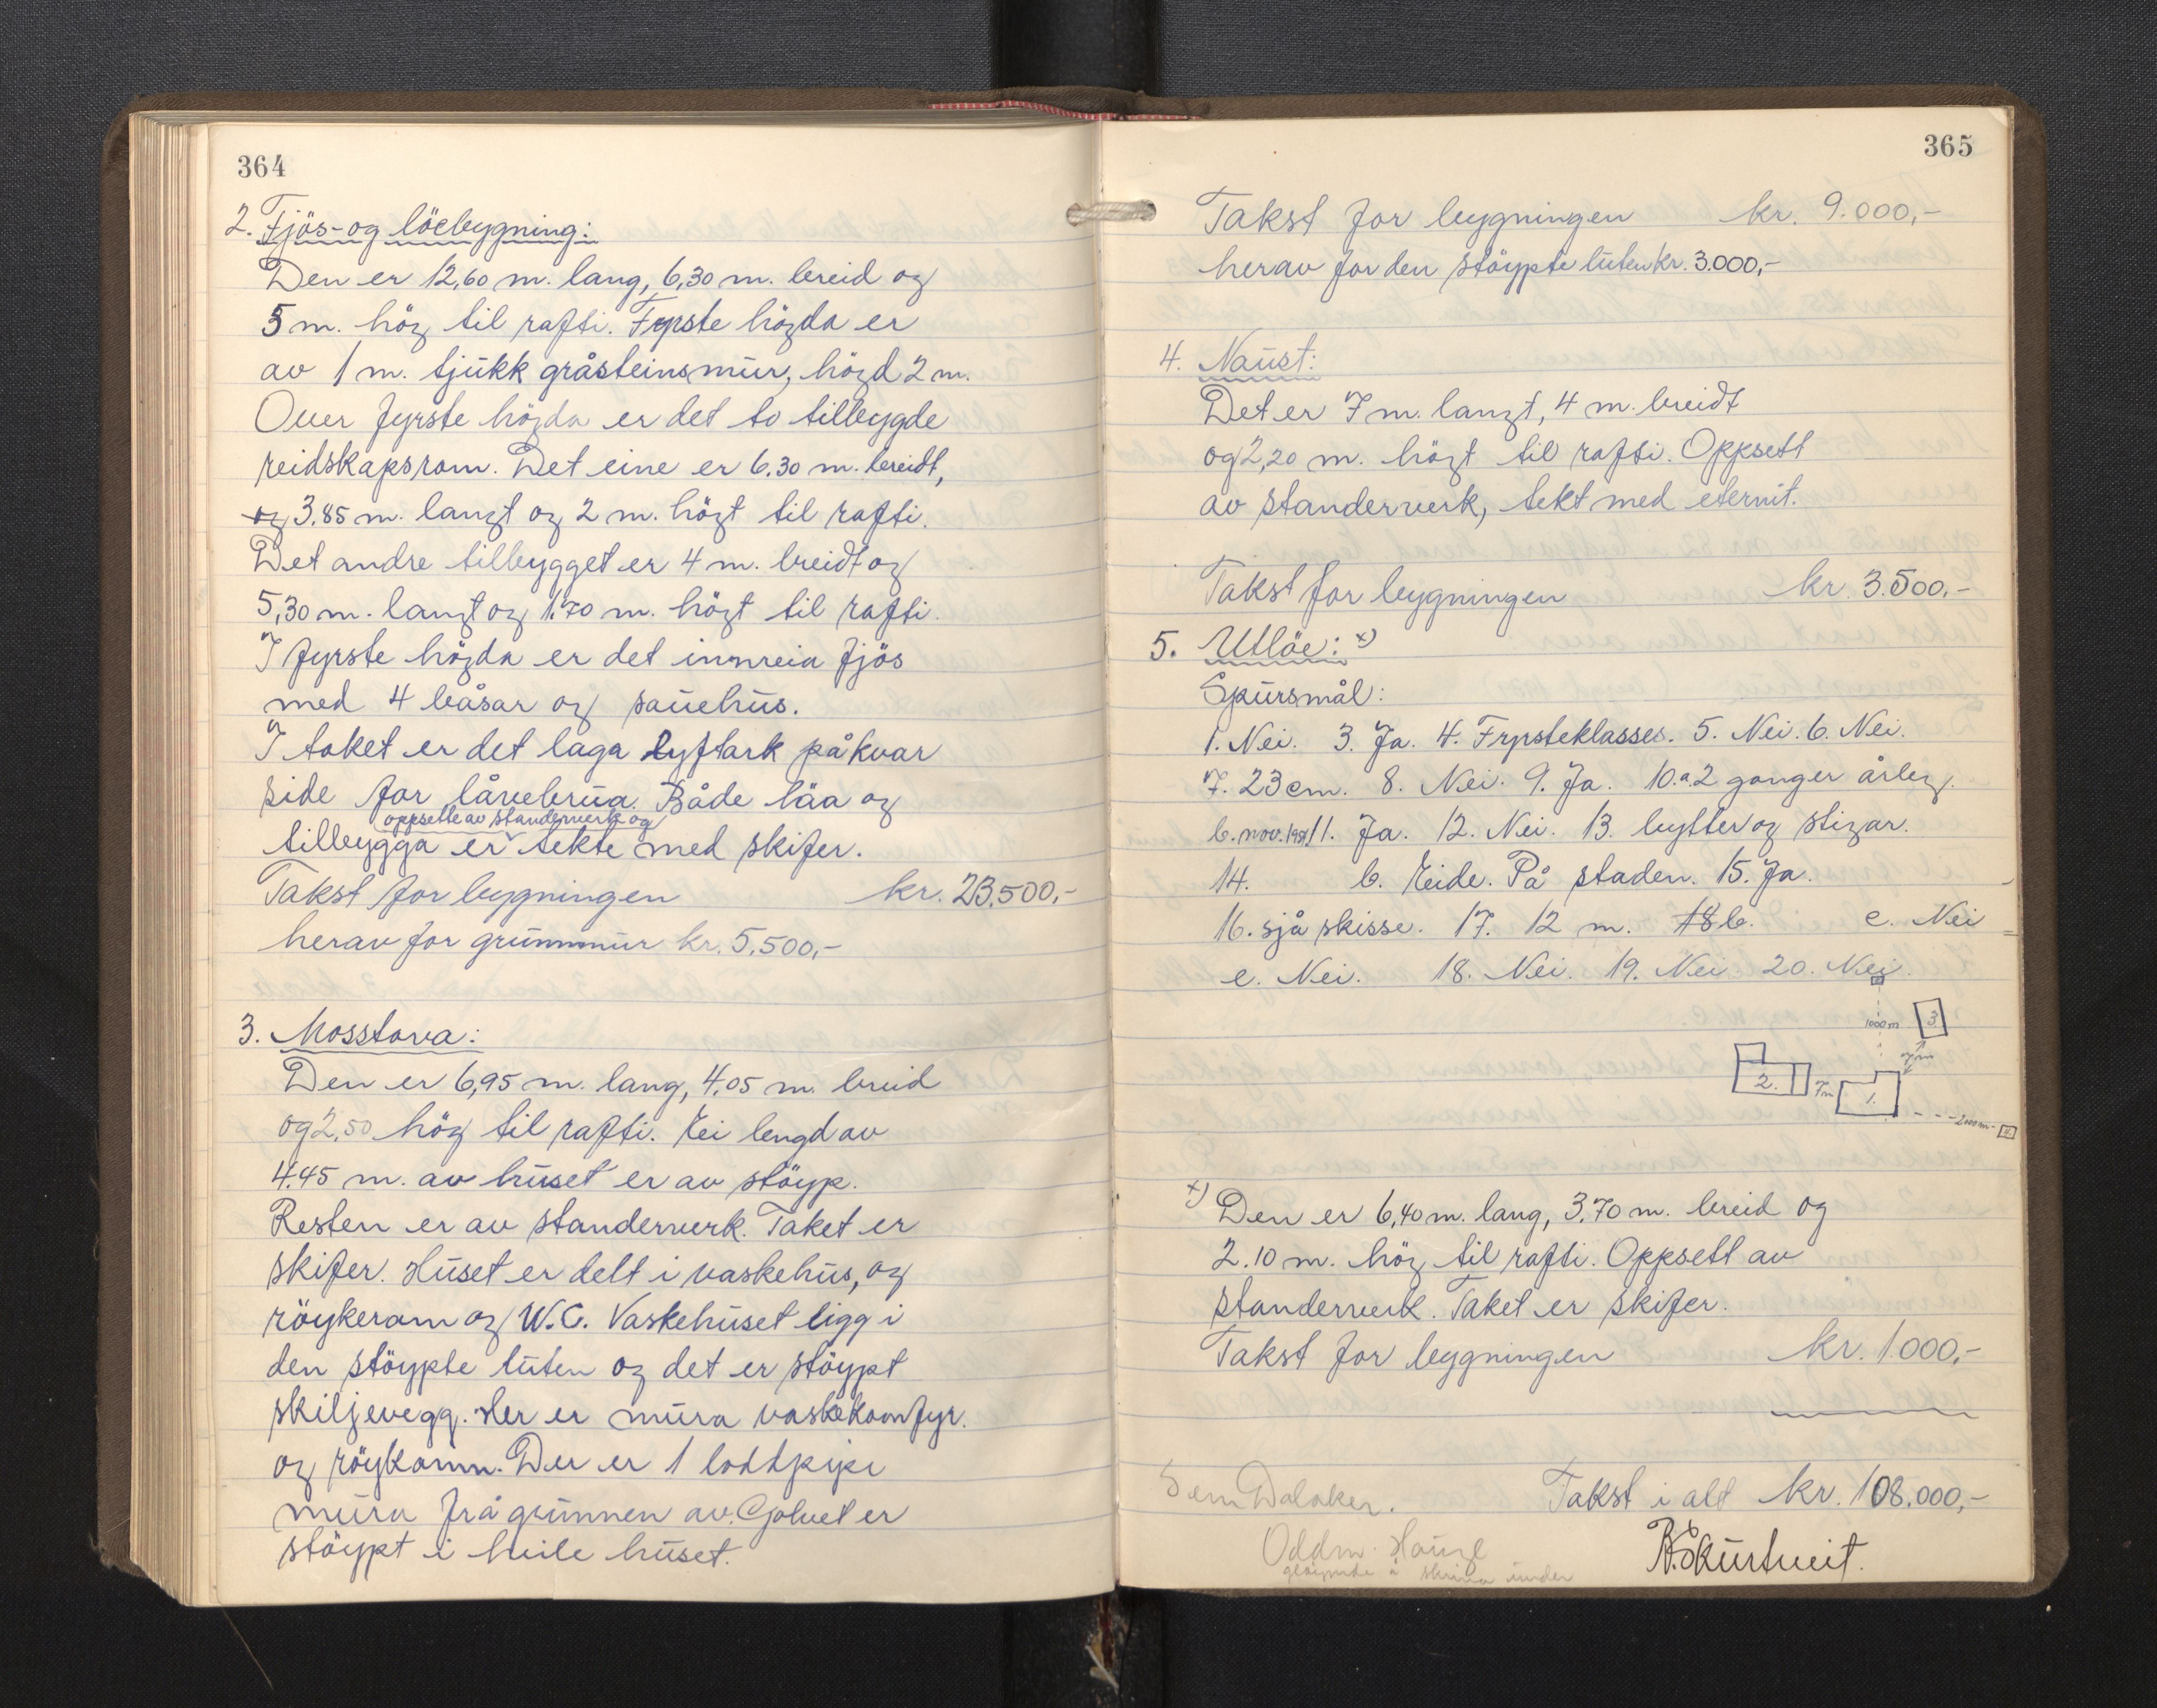 364
2. Fjös- og löebygning:
Den er 12,60 m. lang, 6,30 m. breid og
5 m. hög til rafti. Fyrste högda er
av 1 m. tjukk gråsteinsmur, högd 2 m.
Over fyrste högda er det to tilbygde
reidskapsrom. Det eine er 6.30 m. breidt,
og 3,85 m. langt og 2 m. högt til rafti.
Det andre tilbygget er 4 m. breidt og
5,30 m. langt og 1.70 m. högt til rafti.
I fyrste högda er det innreia fjös
med 4 båsar og sauehus.
I taket er det laga lyftark på kvar
side for låvebrua. Både löa og
oppsette av standerverk og
tilbygga er tekte med skifer.
Takst for bygningen kr. 23.500,-
herav for grunnmur kr. 5.500,-
3. Mosstova:
Den er 6,95 m. lang, 4,05 m. breid
og 2,50 hög til rafti. Ei lengd av
4.45 m. av huset er av stöyp.
Resten er av standerverk. Taket er
skifer. Huset er delt i vaskehus, og
röykerom og W.C. Vaskehuset ligg i
den stöypte luten og det er stöypt
skiljevegg. Her er mura vaskekomfyr.
og röykomn. Der er 1 loddpipe
mura frå grunnen av. Golvet er
stöypt i heile huset.
365
Takst for bygningen kr. 9.000,-
herav for den stöypte luten kr. 3.000,-
4. Naust:
Det er 7 m. langt, 4 m. breidt
og 2,20 m. högt til rafti. Oppsett
av standerverk, tekt med eternit.
Takst for bygningen kr. 3.500,-
5. Utlöe: x)
Spursmål:
1. Nei. 3. Ja. 4. Fyrsteklasses. 5. Nei. 6. Nei.
7. 23 cm. 8. Nei. 9. Ja. 10.a.2 gonger årleg.
b. nov. 1951 11. Ja. 12. Nei. 13. bytter og stigar.
14. b. Eide. På staden. 15. Ja.
16. sjå skisse. 17. 12 m. 18 b. c. Nei
e. Nei. 18. Nei. 19. Nei 20. Nei.
1000 m 3.
2. 7m 1.
2000 m
x) Den er 6,40 m. lang, 3,70 m. breid og
2.10 m. hög til rafti. Oppsett av
standerverk. Taket er skifer.
Takst for bygningen kr. 1.000,-
Takst i alt kr. 108.000,-